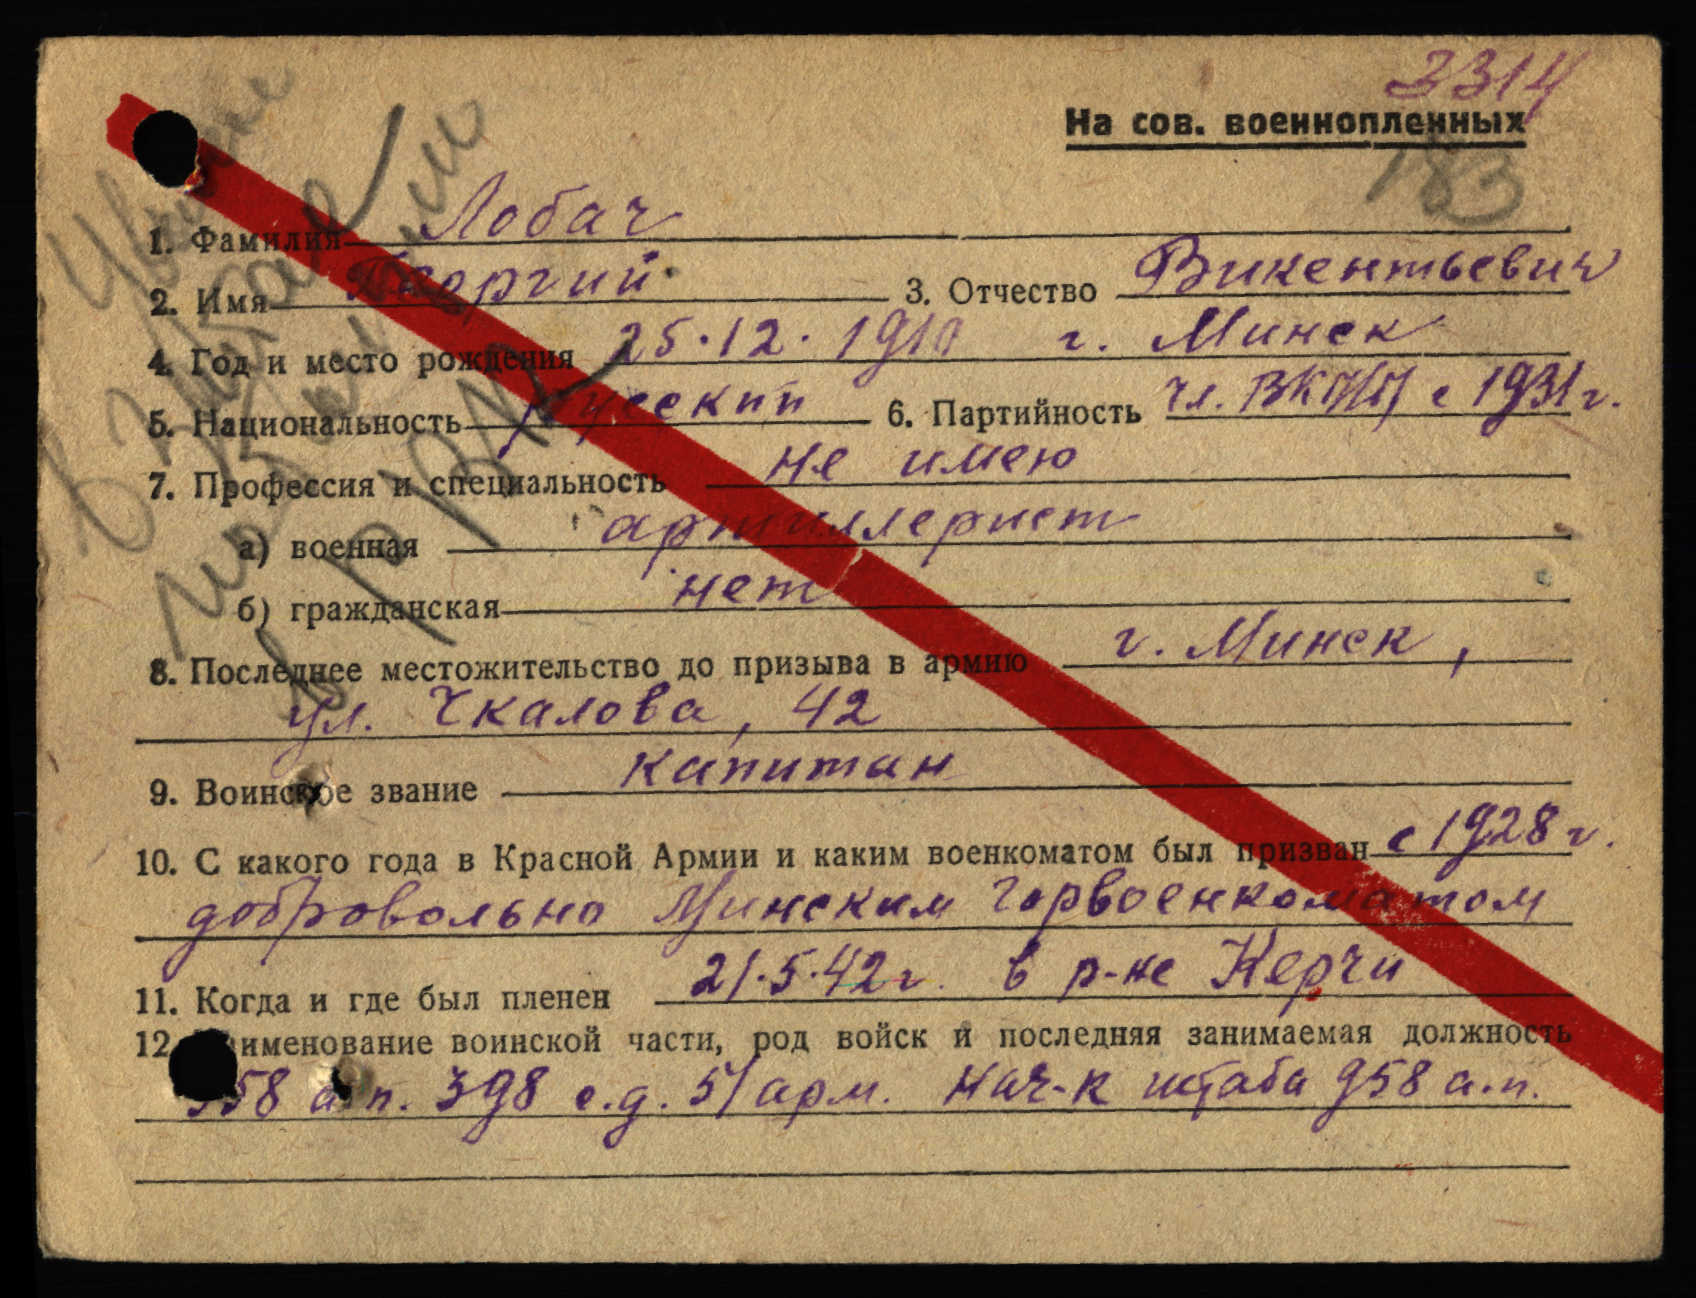 3314
На сов. военнопленных
183
1. Фамилия Лобач
2. Имя Георгий 3. Отчество Викентьевич
4. Год и место рождения 25.12.1910 г. Минск
5. Национальность русский 6. Партийность чл. ВКП(б) с 1931 г.
7. Профессия и специальность не имею
а) военная артиллерист
б) гражданская нет
8. Последнее местожительство до призыва в армию г. Минск,
ул. Чкалова, 42
9. Воинское звание капитан
10. С какого года в Красной Армии и каким военкоматом был призван с 1928 г.
добровольно Минским Горвоенкоматом
11. Когда и где был пленен 21.5.42 г. в р-не Керчи
12. Наименование воинской части, род войск и последняя занимаемая должность
958 а.п. 398 с.д. 51 арм. Нач-к штаба 958 а.п.